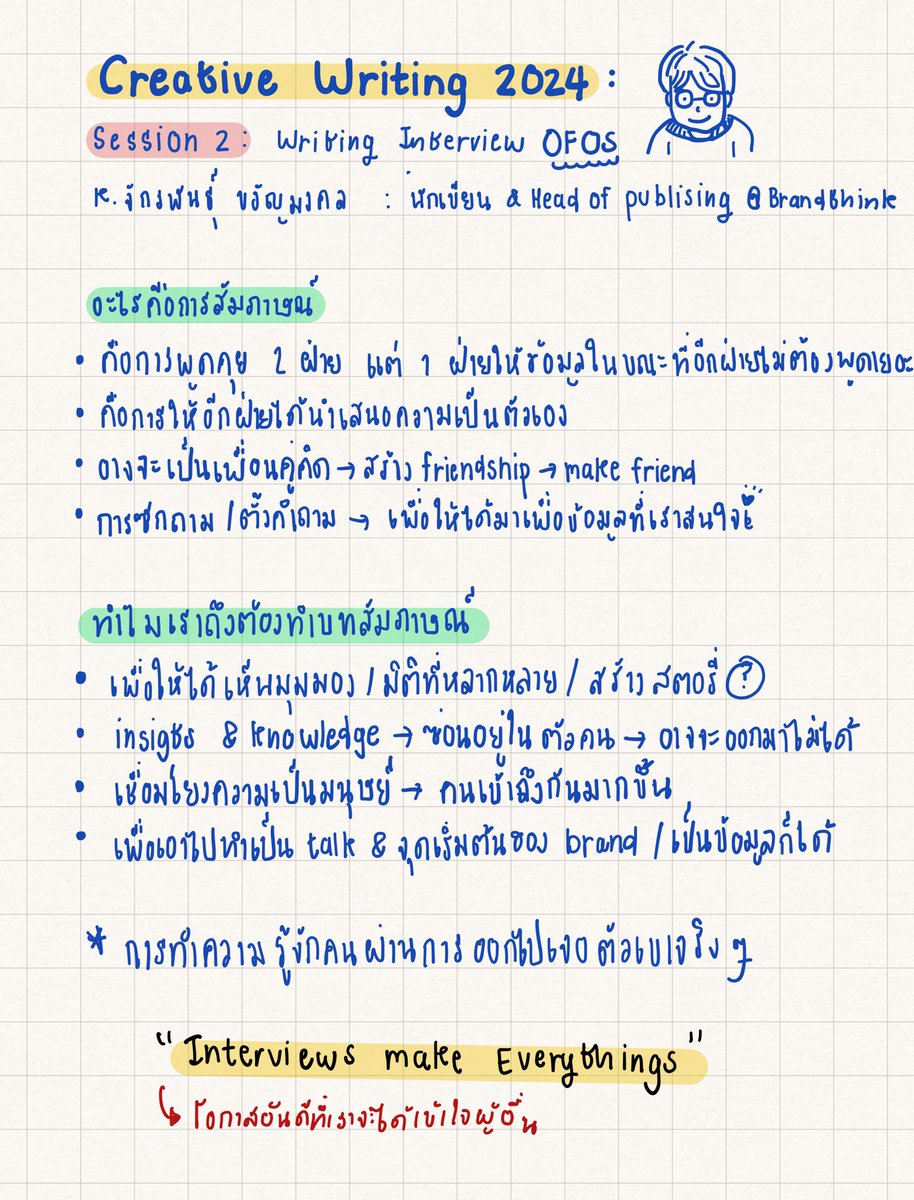 Creative Writing 2024 :
Session 2 : Writing Interview OFOS
K. จักรพันธุ์ ขวัญมงคล : นักเขียน & Head of publising @Brandthink
อะไรคือการสัมภาษณ์
• คือการพูดคุย 2 ฝ่าย แต่ 1 ฝ่ายให้ข้อมูลในขณะที่อีกฝ่ายไม่ต้องพูดเยอะ
• คือการให้อีกฝ่ายได้นำเสนอความเป็นตัวเอง
• อาจจะเป็นเพื่อนคู่คิด → สร้าง friendship → make friend
• การซักถาม / ตั้งคำถาม → เพื่อให้ได้มาเพื่อข้อมูลที่เราสนใจ
ทำไมเราถึงต้องทำบทสัมภาษณ์
• เพื่อให้ได้เห็นมุมมอง / มิติที่หลากหลาย / สร้างสตอรี่ ?
• insigts & knowledge → ซ่อนอยู่ในตัวคน → อาจจะออกมาไม่ได้
• เชื่อมโยงความเป็นมนุษย์ → คนเข้าถึงกันมากขึ้น
• เพื่อเอาไปทำเป็น talk & จุดเริ่มต้นของ brand / เป็นข้อมูลก็ได้
* การทำความรู้จักคนผ่านการออกไปเจอตัวเขาจริง ๆ
"Interviews make Everythings"
↳ โอกาสอันดีที่เราจะได้เข้าใจผู้อื่น